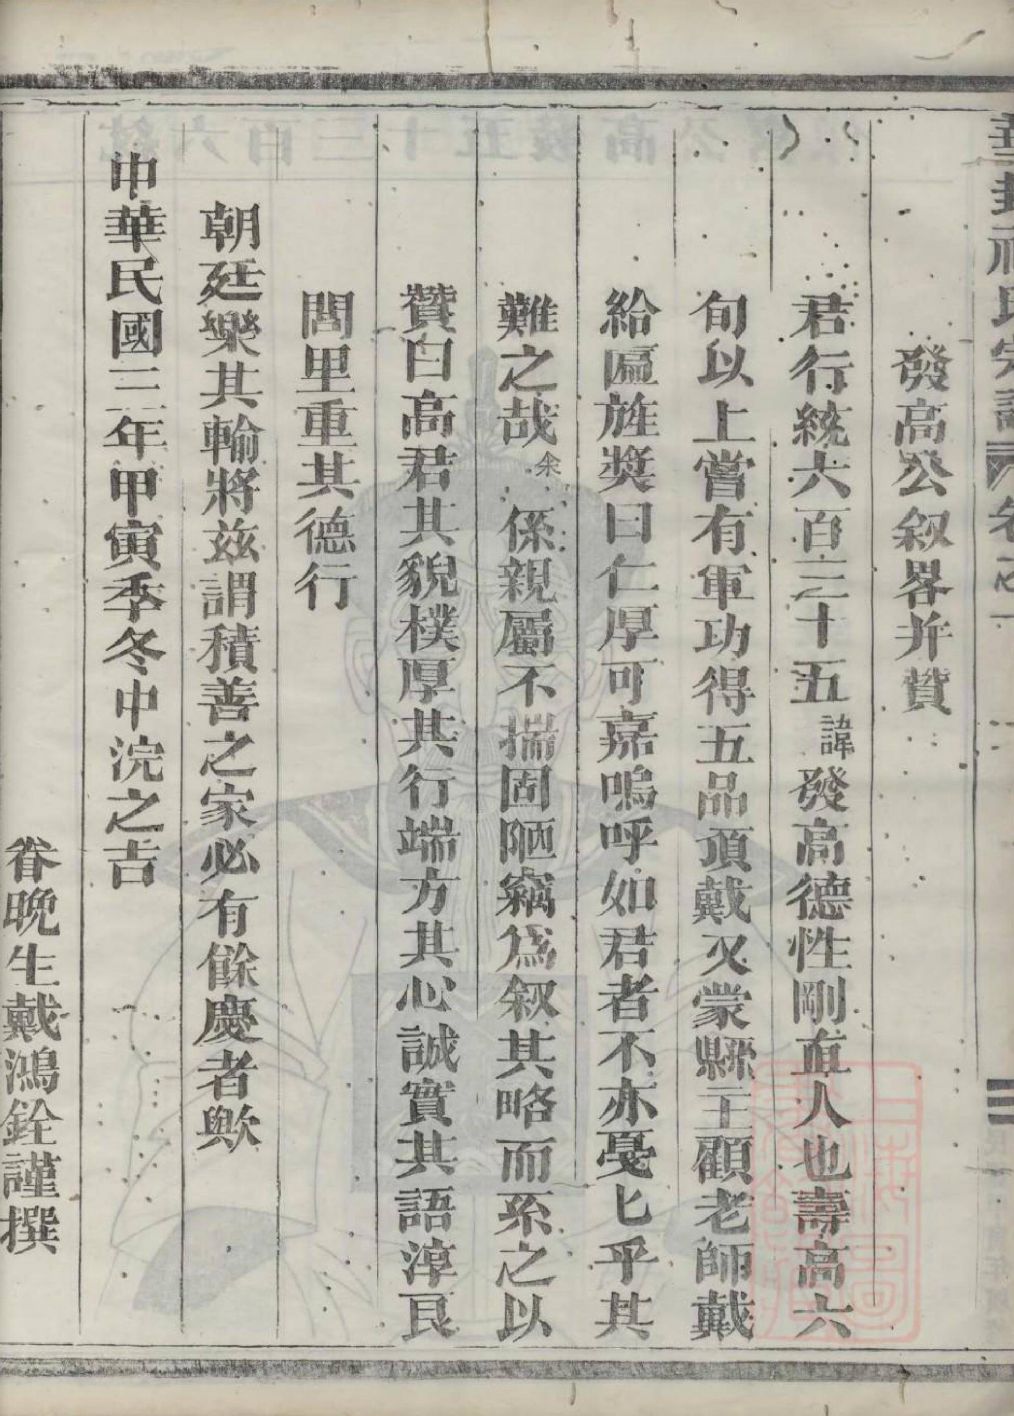 發高公叙畧并贊
君行統六百三十五諱發高德性剛直人也壽高六
旬以上嘗有軍功得五品頂戴又蒙縣主顧老師戴
給匾旌獎曰仁厚可嘉嗚呼如君者不亦戞乚乎其
難之哉余係親屬不揣固陋竊爲叙其略而系之以
贊曰高君其貌樸厚其行端方其心誠實其語淳良
閭里重其德行
朝廷樂其輸將兹謂積善之家必有餘慶者歟
中華民國三年甲寅季冬中浣之吉
眷晚生戴鴻銓謹撰